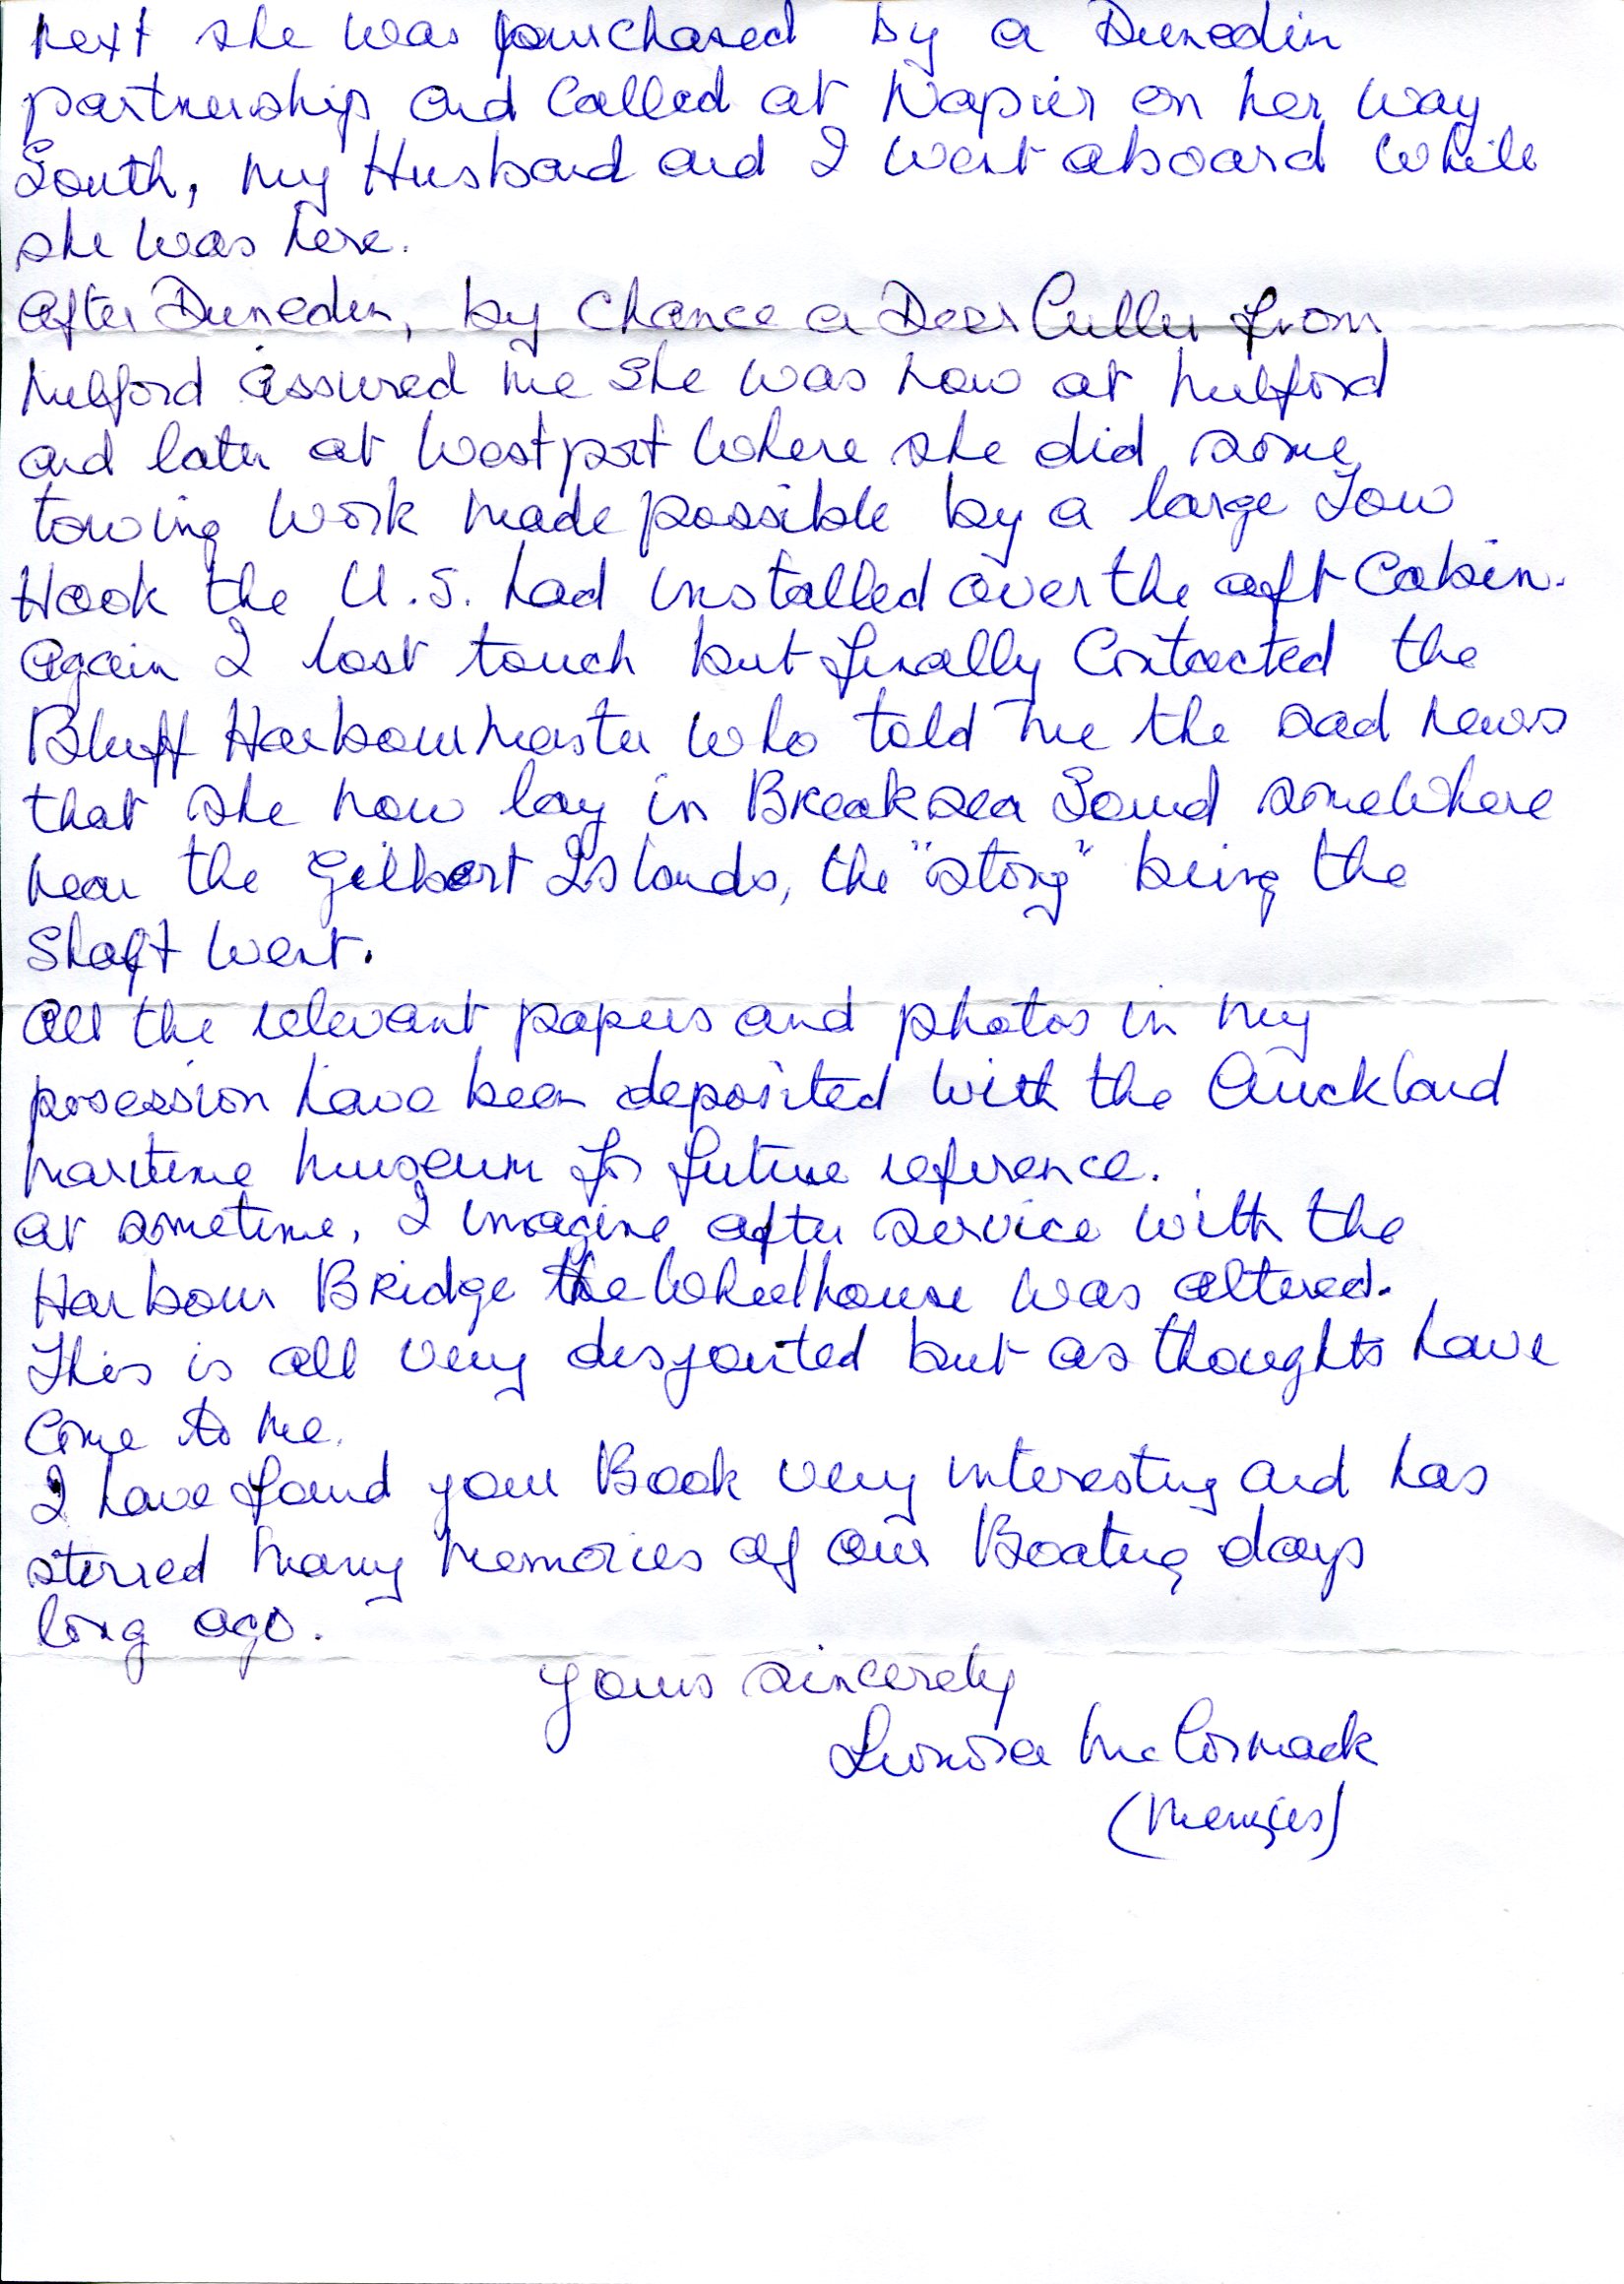 next she was purchased by a Dunedin
partnership and Called at Napier on her way
South, my Husband and I went aboard while
she was here.
After Dunedin, by Chance a Deer Culler from
Milford assured me she was now at Milford
and later at Westport where she did some
towing work made possible by a large Tow
Hook the U.S. had installed over the aft Cabin.
Again I lost touch but finally Contacted the
Bluff Harbourmaster who told me the sad news
that she now lay in Breaksea Sound somewhere
near the Gilbert Islands, the "story" being the
Shaft went.
All the relevant papers and photos in my
posession have been deposited with the Auckland
Maritime Museum for future reference.
At sometime, I imagine after service with the
Harbour Bridge the Wheelhouse was altered.
This is all very disjointed but as thoughts have
Come to me.
I have found your Book very interesting and has
stirred many memories of our Boating days
long ago.
Yours sincerely
McCormack
(Menzies)